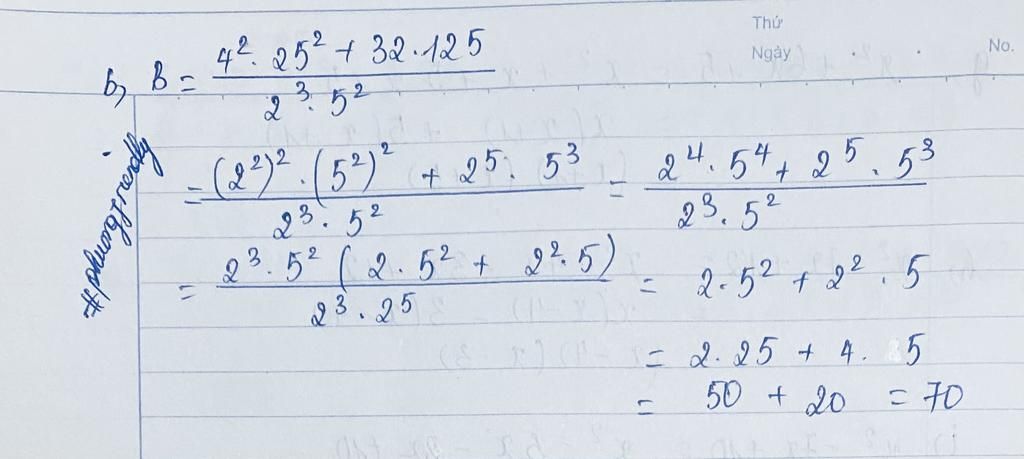 Thứ
Ngày
No.
b, B = (4² . 25² + 32 . 125) / (2³ . 5²)
= ((2²)² . (5²)² + 2⁵ . 5³) / (2³ . 5²) = (2⁴ . 5⁴ + 2⁵ . 5³) / (2³ . 5²)
= (2³ . 5² (2 . 5² + 2² . 5)) / (2³ . 2⁵) = 2 . 5² + 2² . 5
= 2 . 25 + 4 . 5
= 50 + 20 = 70